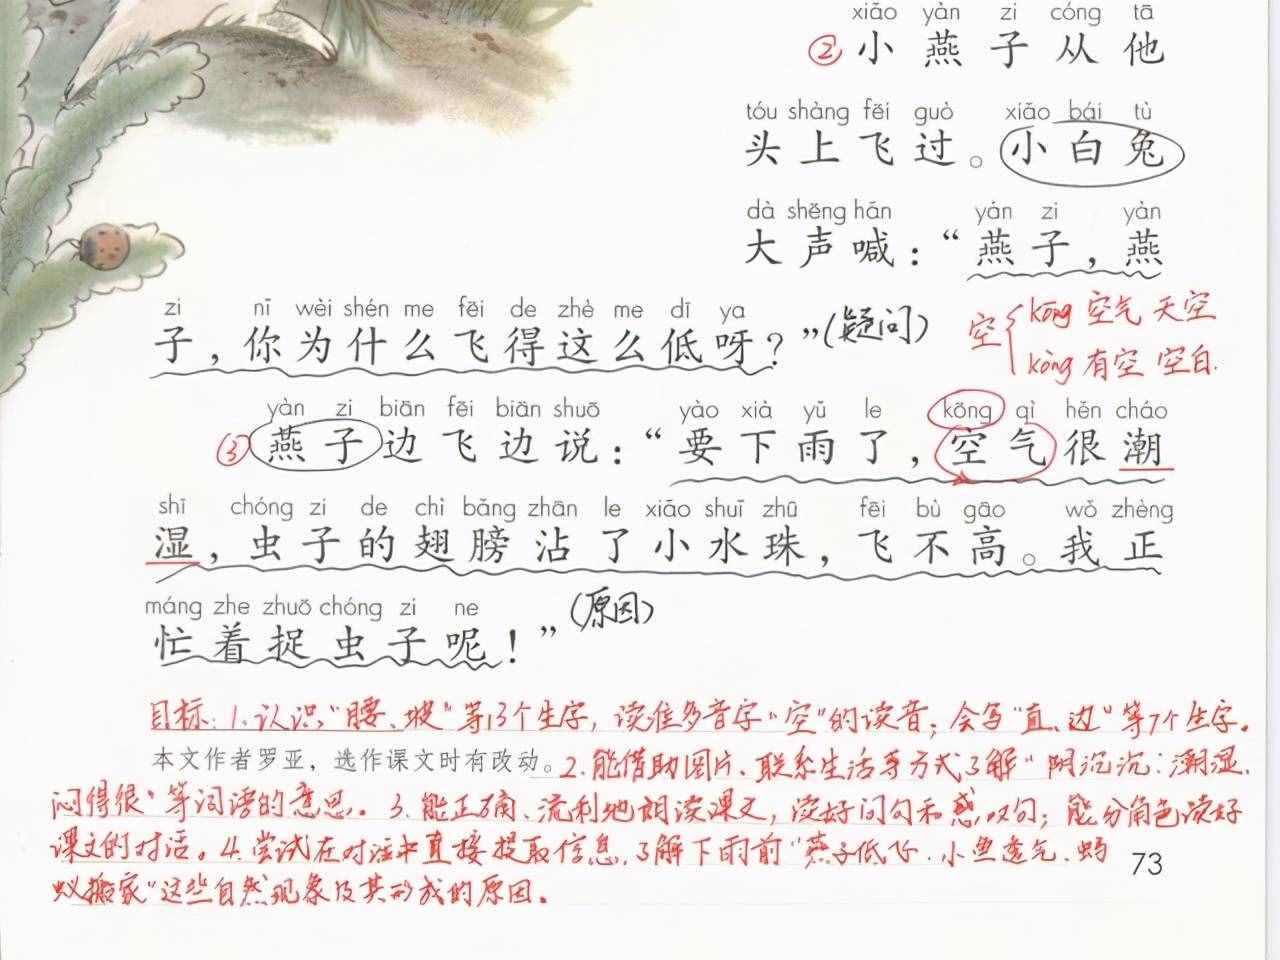 xiǎo yàn zi cóng tā
②小燕子从他
tóu shàng fēi guò xiǎo bái tù
头上飞过。小白兔
dà shēng hǎn yàn zi yàn
大声喊：“燕子，燕
zi nǐ wèi shén me fēi de zhè me dī ya
子，你为什么飞得这么低呀？”（疑问）
空 kōng 空气 天空
kòng 有空 空白.
yàn zi biān fēi biān shuō yào xià yǔ le kōng qì hěn cháo
③燕子边飞边说：“要下雨了，空气很潮
shī chóng zi de chì bǎng zhān le xiǎo shuǐ zhū fēi bù gāo wǒ zhèng
湿，虫子的翅膀沾了小水珠，飞不高。我正
máng zhe zhuō chóng zi ne
忙着捉虫子呢！”（原因）
目标：1.认识“腰、坡”等13个生字，读准多音字“空”的读音；会写“直、边”等7个生字。
本文作者罗亚，选作课文时有改动。
2.能借助图片、联系生活等方式了解“阴沉沉、潮湿、
闷得很”等词语的意思。3.能正确、流利地朗读课文，读好问句和感叹句；能分角色读好
课文的对话。4.尝试在对话中直接提取信息，了解下雨前“燕子低飞、小鱼透气、蚂
蚁搬家”这些自然现象及其形成的原因。
73